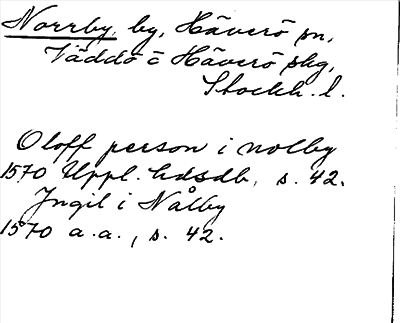 Norrby, by, Häverö sn,
Väddö ō Häverö skg,
Stockh. l.
Oloff person i nolby
1570 Uppl. hdsdb, s. 42.
Jngil i Nålby
1570 a.a., s. 42.